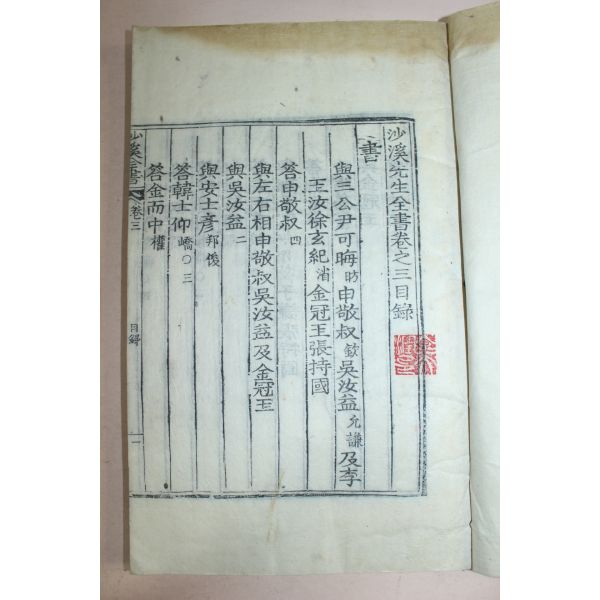 沙溪先生全書卷之三目錄
書
與三公尹可晦昉申敬叔欽吳汝益允謙及李
玉汝徐玄紀渻金冠玉張持國
答申敬叔四
與左右相申敬叔吳汝益及金冠玉
與吳汝益二
與安士彦邦俊
答韓士仰嶠○三
答金而中權
沙溪全書 卷三 目錄 一